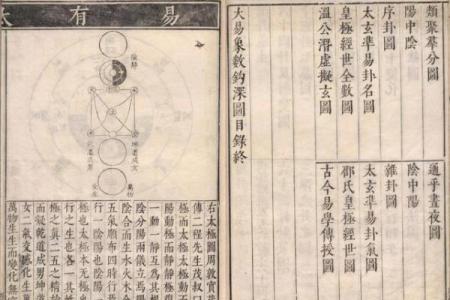 類聚羣分圖
通乎晝夜圖
陽中陰
陰中陽
序卦圖
雜卦圖
太玄準易卦名圖
太玄準易卦氣圖
皇極經世全數圖
邵氏皇極經世圖
溫公潛虛擬玄圖
古今易學傳授圖
大易象數鈎深圖目錄終
易有太
陰靜
坤道成女
乾道成男
萬物
化生
右太極圖周敦實茂
傳二程先生茂叔曰
極而太極太極動
陽動極而靜靜
一動一靜互為其根
陰分陽兩儀立焉陽
陰合而生水火木金
五氣順布四時行焉
行一陰陽也陰陽
極也太極本無極也
行之生也各一其性
極之眞二五之精妙
而凝乾道成男坤道
女二氣交感化生萬
萬物生生而變化無